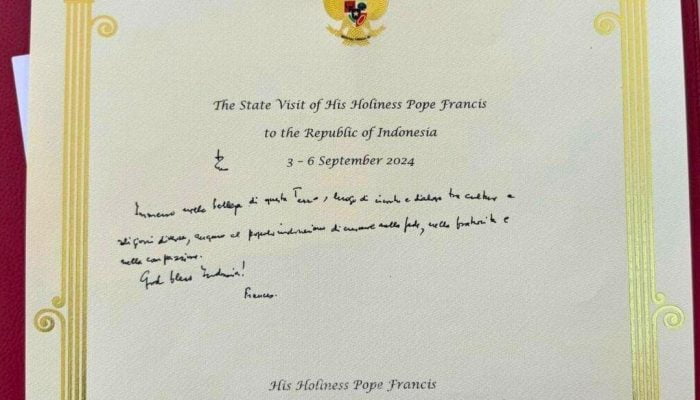 The State Visit of His Holiness Pope Francis
to the Republic of Indonesia
3 – 6 September 2024
Immerso nella bellezza di questa Terra, luogo di incontro e dialogo tra culture e
religioni diverse, auguro al popolo indonesiano di crescere nella fede, nella fraternità e
nella compassione.
God bless Indonesia!
Francesco.
His Holiness Pope Francis